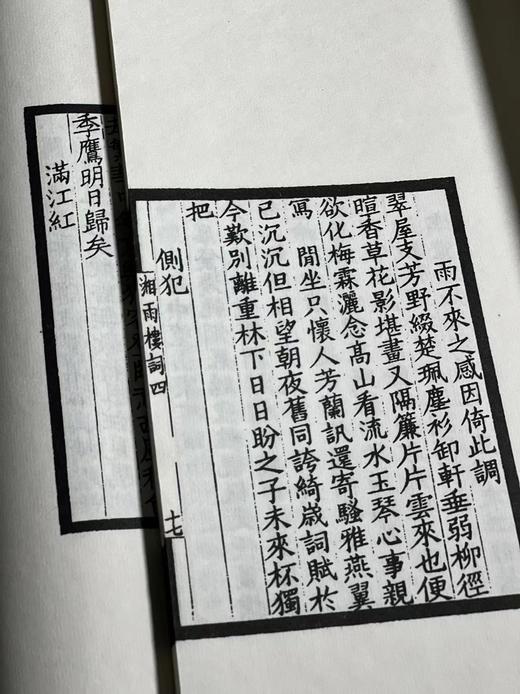 雨不來之感因倚此調
翠屋支芳野綴楚珮塵衫卸軒垂弱柳徑
暄香草花影堪畫又隔簾片片雲來也便
欲化梅霖灑念髙山看流水玉琴心事親
寫 閒坐只懷人芳蘭訊還寄騷雅燕翼
已沉沉但相望朝夜舊同誇綺歲詞賦於
今歎別離重林下日日盼之子未來杯獨
把
側犯
湘雨樓詞四 七
季鷹明日歸矣
滿江紅